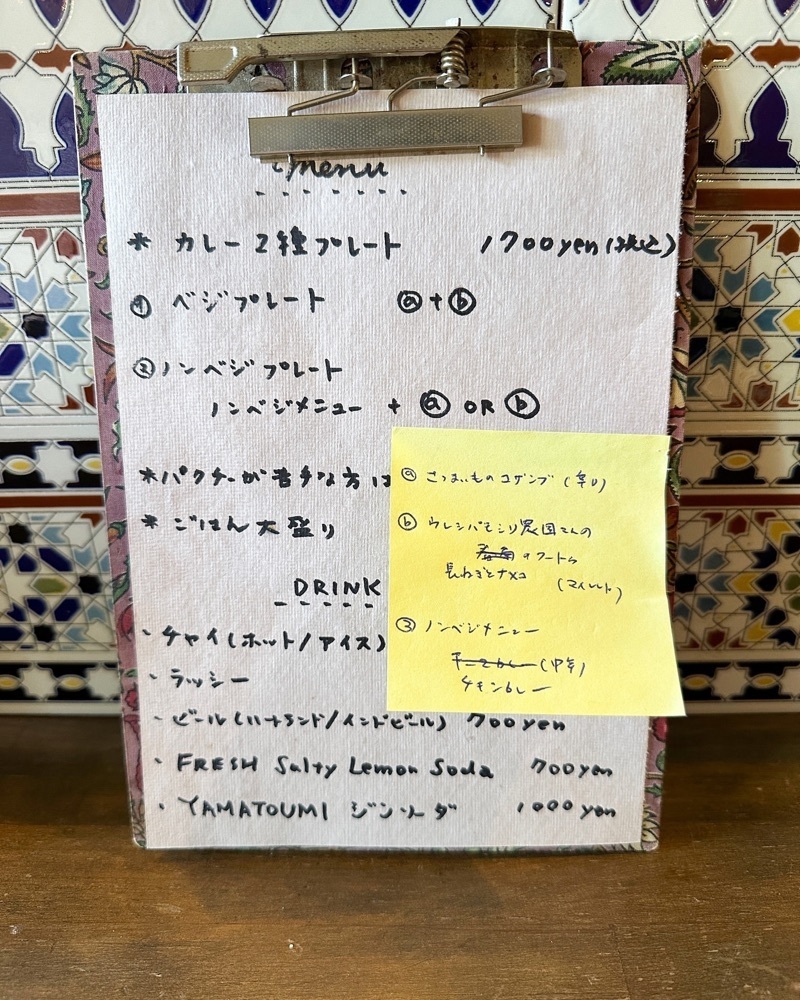 menu
* カレー2種プレート 1700yen(税込)
① ベジプレート ⓐ+ⓑ
②ノンベジプレート
ノンベジメニュー + ⓐ OR ⓑ
*パクチーが苦手な方は
* ごはん大盛り
DRINK
・チャイ(ホット/アイス)
・ラッシー
・ビール(ハートランド/インドビール) 700yen
・FRESH Salty Lemon Soda 700yen
・YAMATOUMI ジンソーダ 1000yen
ⓐ さつまいものコザンブ(辛口)
ⓑ ウレシパモシリ農園さんの
のクートゥ
長ねぎとナメコ
(マイルド)
③ ノンベジメニュー
(中辛)
チキンカレー